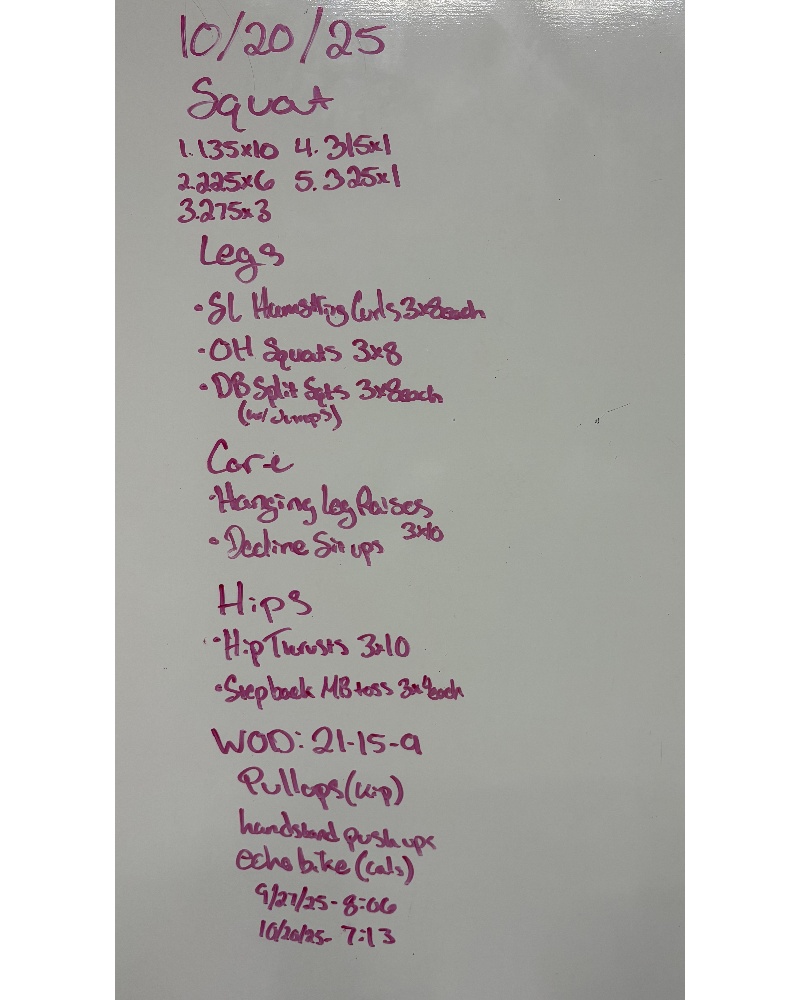 10/20/25
Squat
1. 135x10 4. 315x1
2. 225x6 5. 325x1
3. 275x3
Legs
• SL Hamstring Curls 3x8each
• OH Squats 3x8
• DB Split Sqts 3x8each
(w/ Jumps)
Core
• Hanging Leg Raises
• Decline Sit ups 3x10
Hips
• Hip Thrusts 3x10
• Stepback MB toss 3x4each
WOD: 21-15-9
Pullups (kip)
handstand pushups
echo bike (cals)
9/27/25 - 8:06
10/20/25 - 7:13